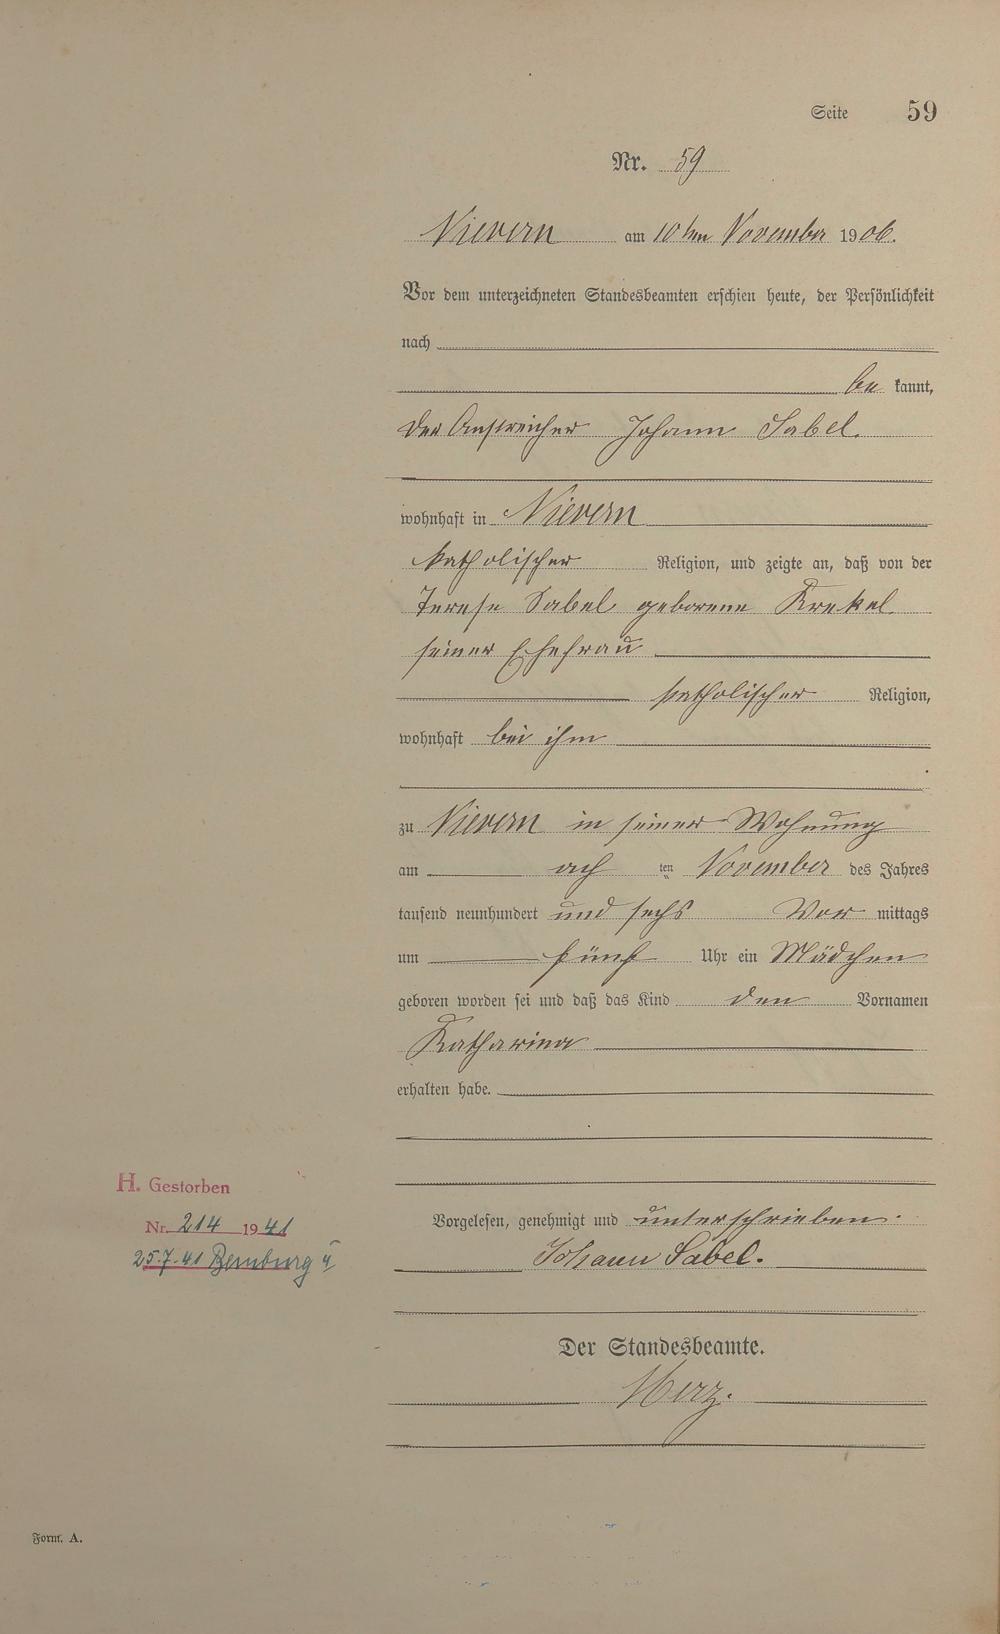 Seite 59
Nr. 59
Nievern am 10ten November 1906.
Vor dem unterzeichneten Standesbeamten erschien heute, der Persönlichkeit
nach
be kannt,
der Anstreicher Johann Sabel.
wohnhaft in Nievern
katholischer Religion, und zeigte an, daß von der
Terese Sabel geborene Krekel
seiner Ehefrau
katholischer Religion,
wohnhaft bei ihm
zu Nievern in seiner Wohnung
am ach ten November des Jahres
tausend neunhundert und sechs Vor mittags
um fünf Uhr ein Mädchen
geboren worden sei und daß das Kind den Vornamen
Katharina
erhalten habe.
H. Gestorben
Nr. 214 1941
25.7.41 Bernburg
Vorgelesen, genehmigt und unterschrieben.
Johann Sabel.
Der Standesbeamte.
Merz.
Form. A.